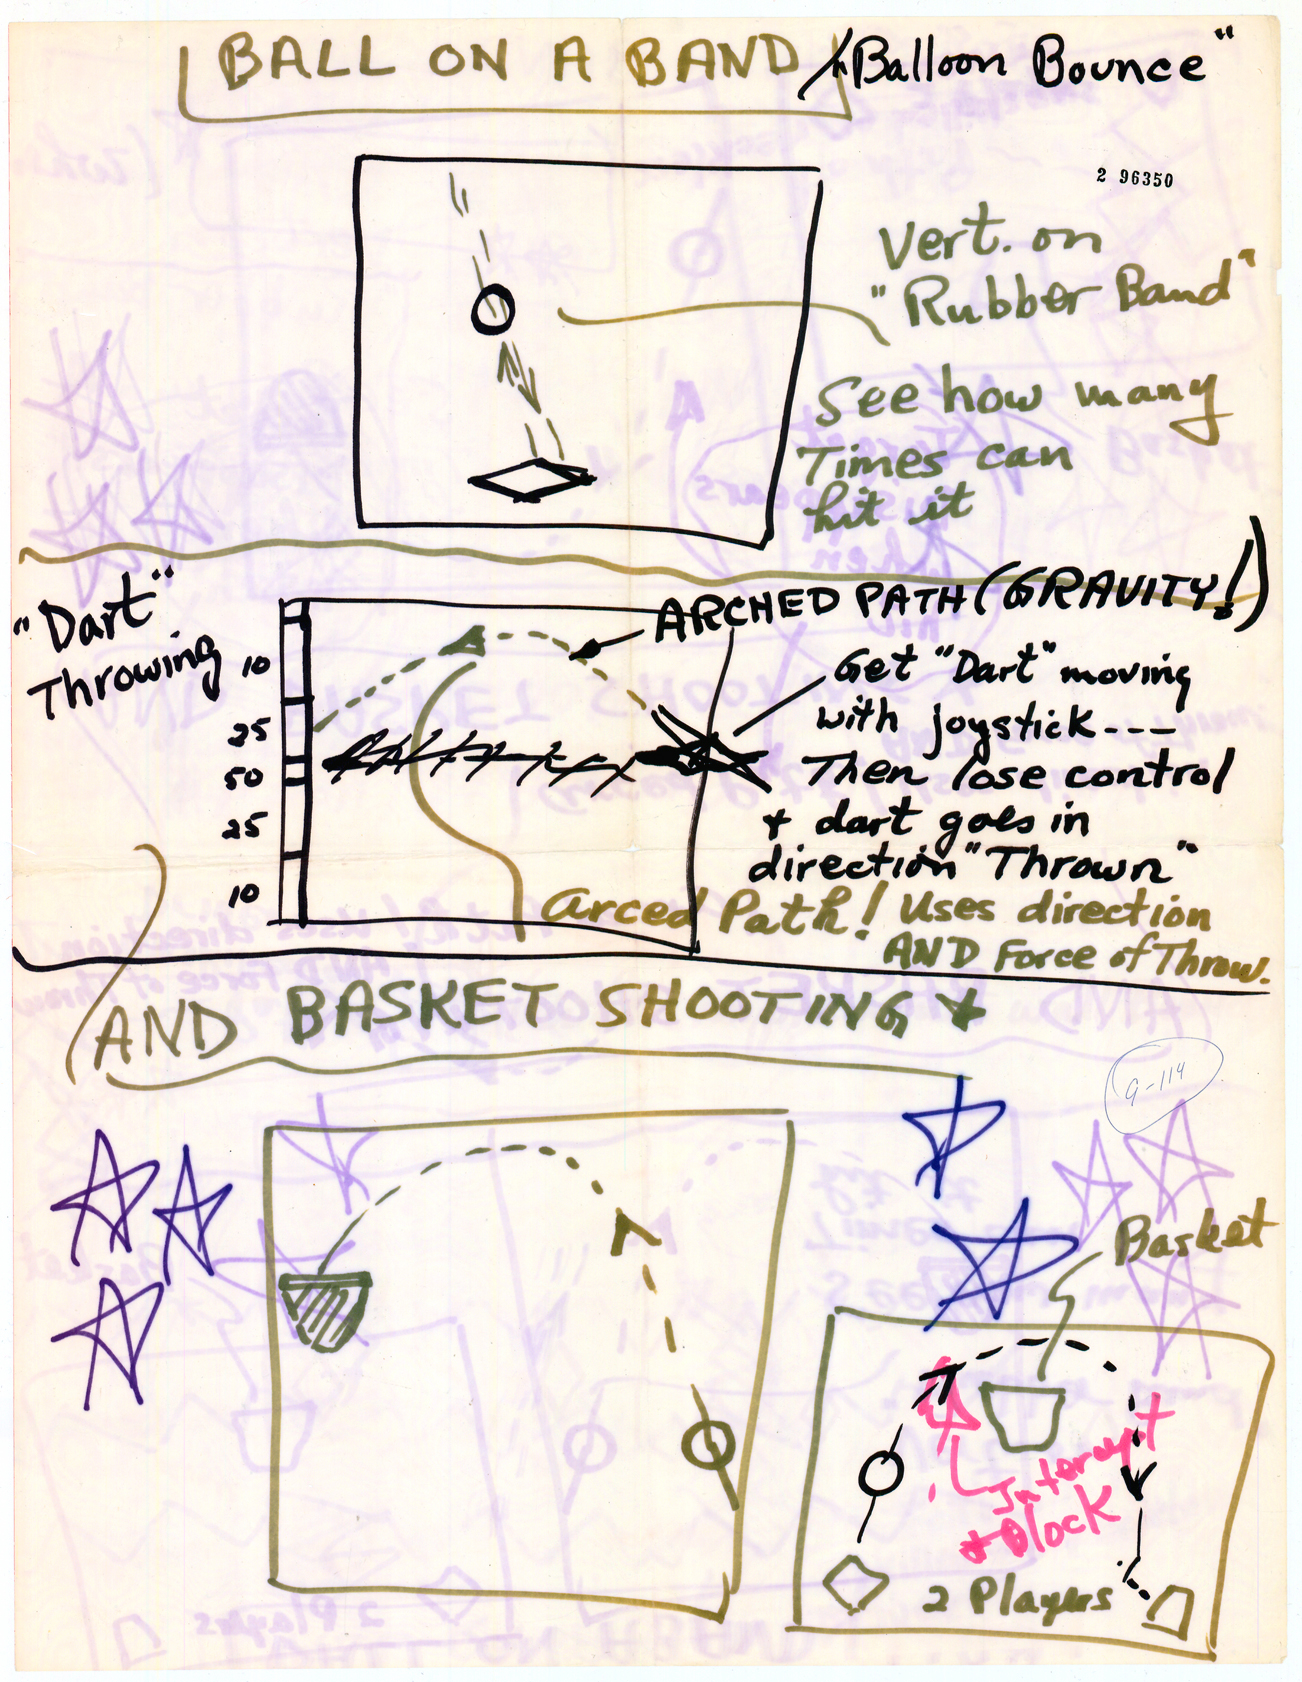 BALL ON A BAND / "Balloon Bounce"
2 96350
Vert. on
"Rubber Band"
See how many
Times can
hit it
"Dart"
Throwing
ARCHED PATH (GRAVITY!)
10
25
50
25
10
Get "Dart" moving
with joystick ---
Then lose control
+ dart goes in
direction "Thrown"
Arced Path! Uses direction
AND Force of Throw.
AND BASKET SHOOTING
9-114
Basket
Intercept
+ Block
2 Players